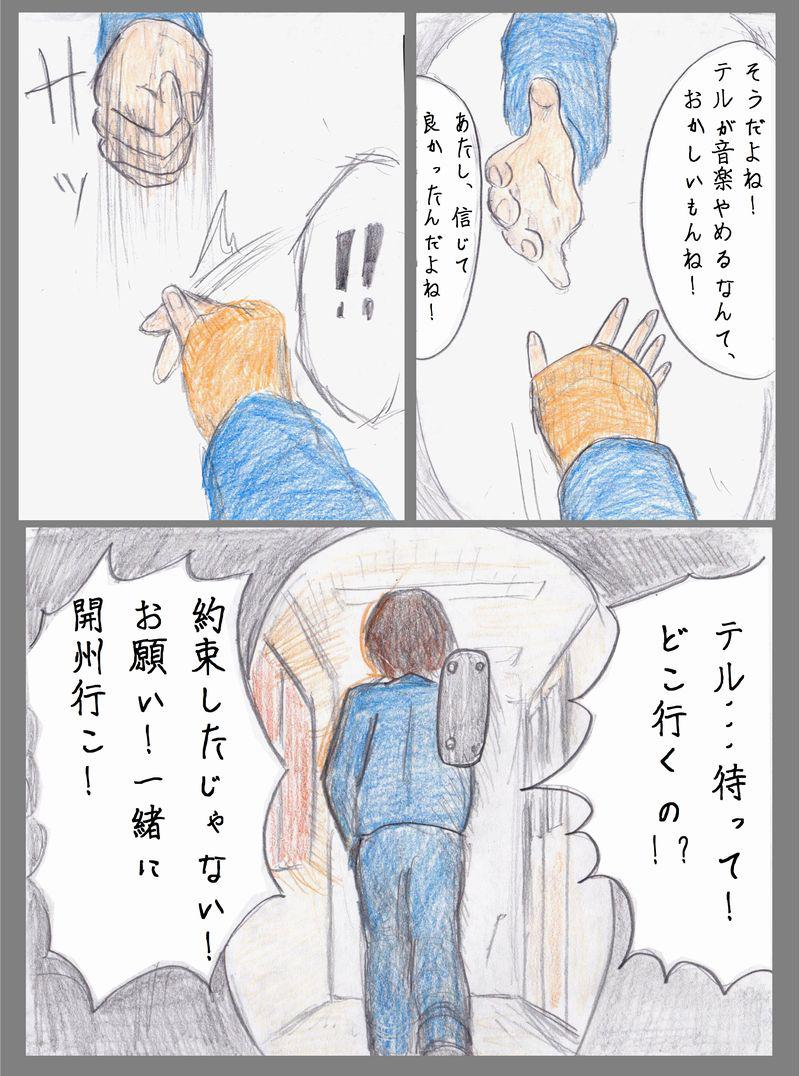 そうだよね！
テルが音楽やめるなんて、
おかしいもんね！
あたし、信じて
良かったんだよね！
サッ
!!
テル…待って！
どこ行くの!?
約束したじゃない！
お願い！一緒に
開州行こ！